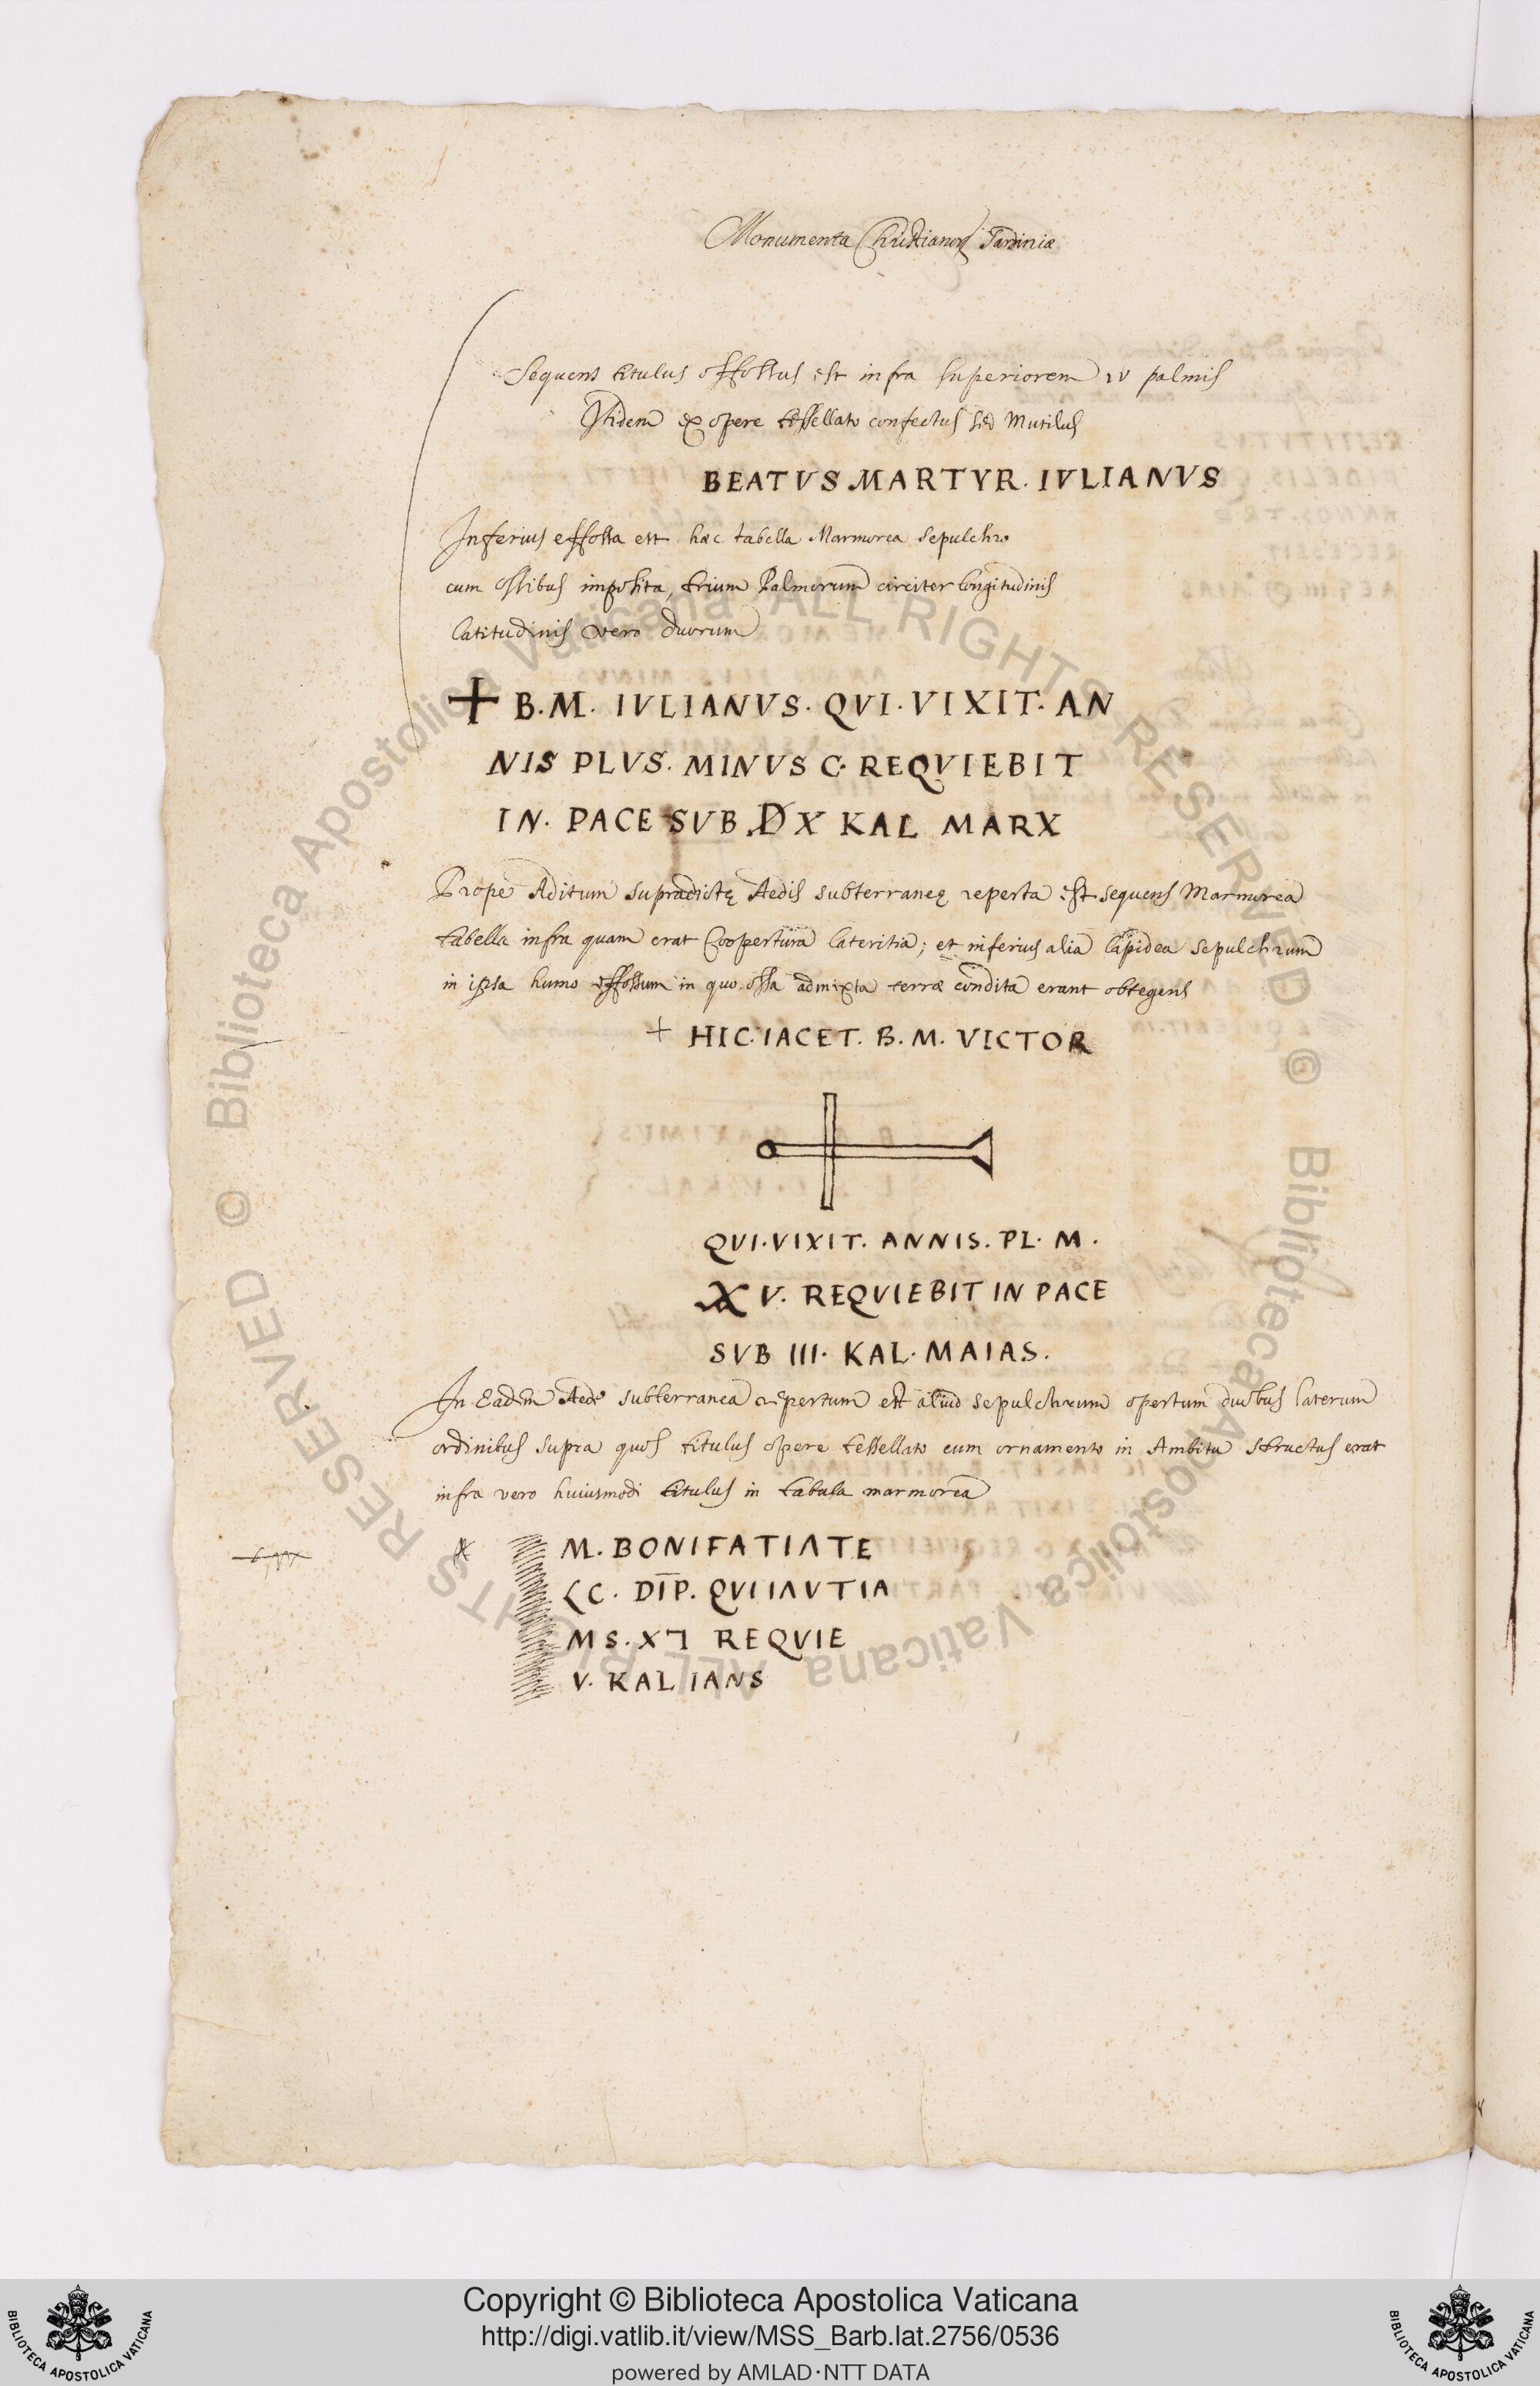 Monumenta Christianor Sardiniæ
Sequens titulus effossus est infra superiorem IV palmis
Itidem ex opere tessellato confectus sed Mutilus
BEATVS MARTYR. IVLIANVS
Inferius effossa est hæc tabella Marmorea sepulchro
cum ossibus imposita, trium Palmorum circiter longitudinis
latitudinis vero duorum
+ B.M. IVLIANVS. QVI. VIXIT. AN
NIS PLVS. MINVS C. REQVIEBIT
IN. PACE SVB. D X KAL MARX
Prope Aditum supradictę Aedis subterraneę reperta est sequens Marmorea
tabella infra quam erat Coopertura lateritia; et inferius alia lapidea sepulchrum
in ipsa humo effossum in quo ossa admixta terræ condita erant obtegens
+ HIC. IACET. B. M. VICTOR
QVI. VIXIT. ANNIS. PL. M.
XV. REQVIEBIT IN PACE
SVB III. KAL. MAIAS.
In Eadem Aede subterranea repertum est aliud sepulchrum opertum duobus laterum
ordinibus supra quos titulus opere tessellato cum ornamento in Ambitu structus erat
infra vero huiusmodi titulus in tabula marmorea
M. BONIFATIΛTE
C. DĪP. QVIIΛVTIA
MS. X REQVIE
V. KAL IANS
© Biblioteca Apostolica Vaticana ALL RIGHTS RESERVED © Biblioteca Apostolica Vaticana ALL RIGHTS RESERVED
Copyright © Biblioteca Apostolica Vaticana
http://digi.vatlib.it/view/MSS_Barb.lat.2756/0536
powered by AMLAD·NTT DATA
BIBLIOTECA APOSTOLICA VATICANA
BIBLIOTECA APOSTOLICA VATICANA